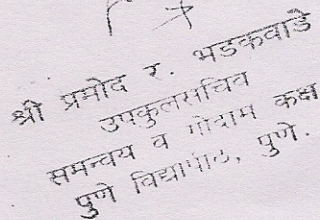 श्री प्रमोद र. भडकवाडे
उपकुलसचिव
समन्वय व गोदाम कक्ष
पुणे विद्यापीठ, पुणे.